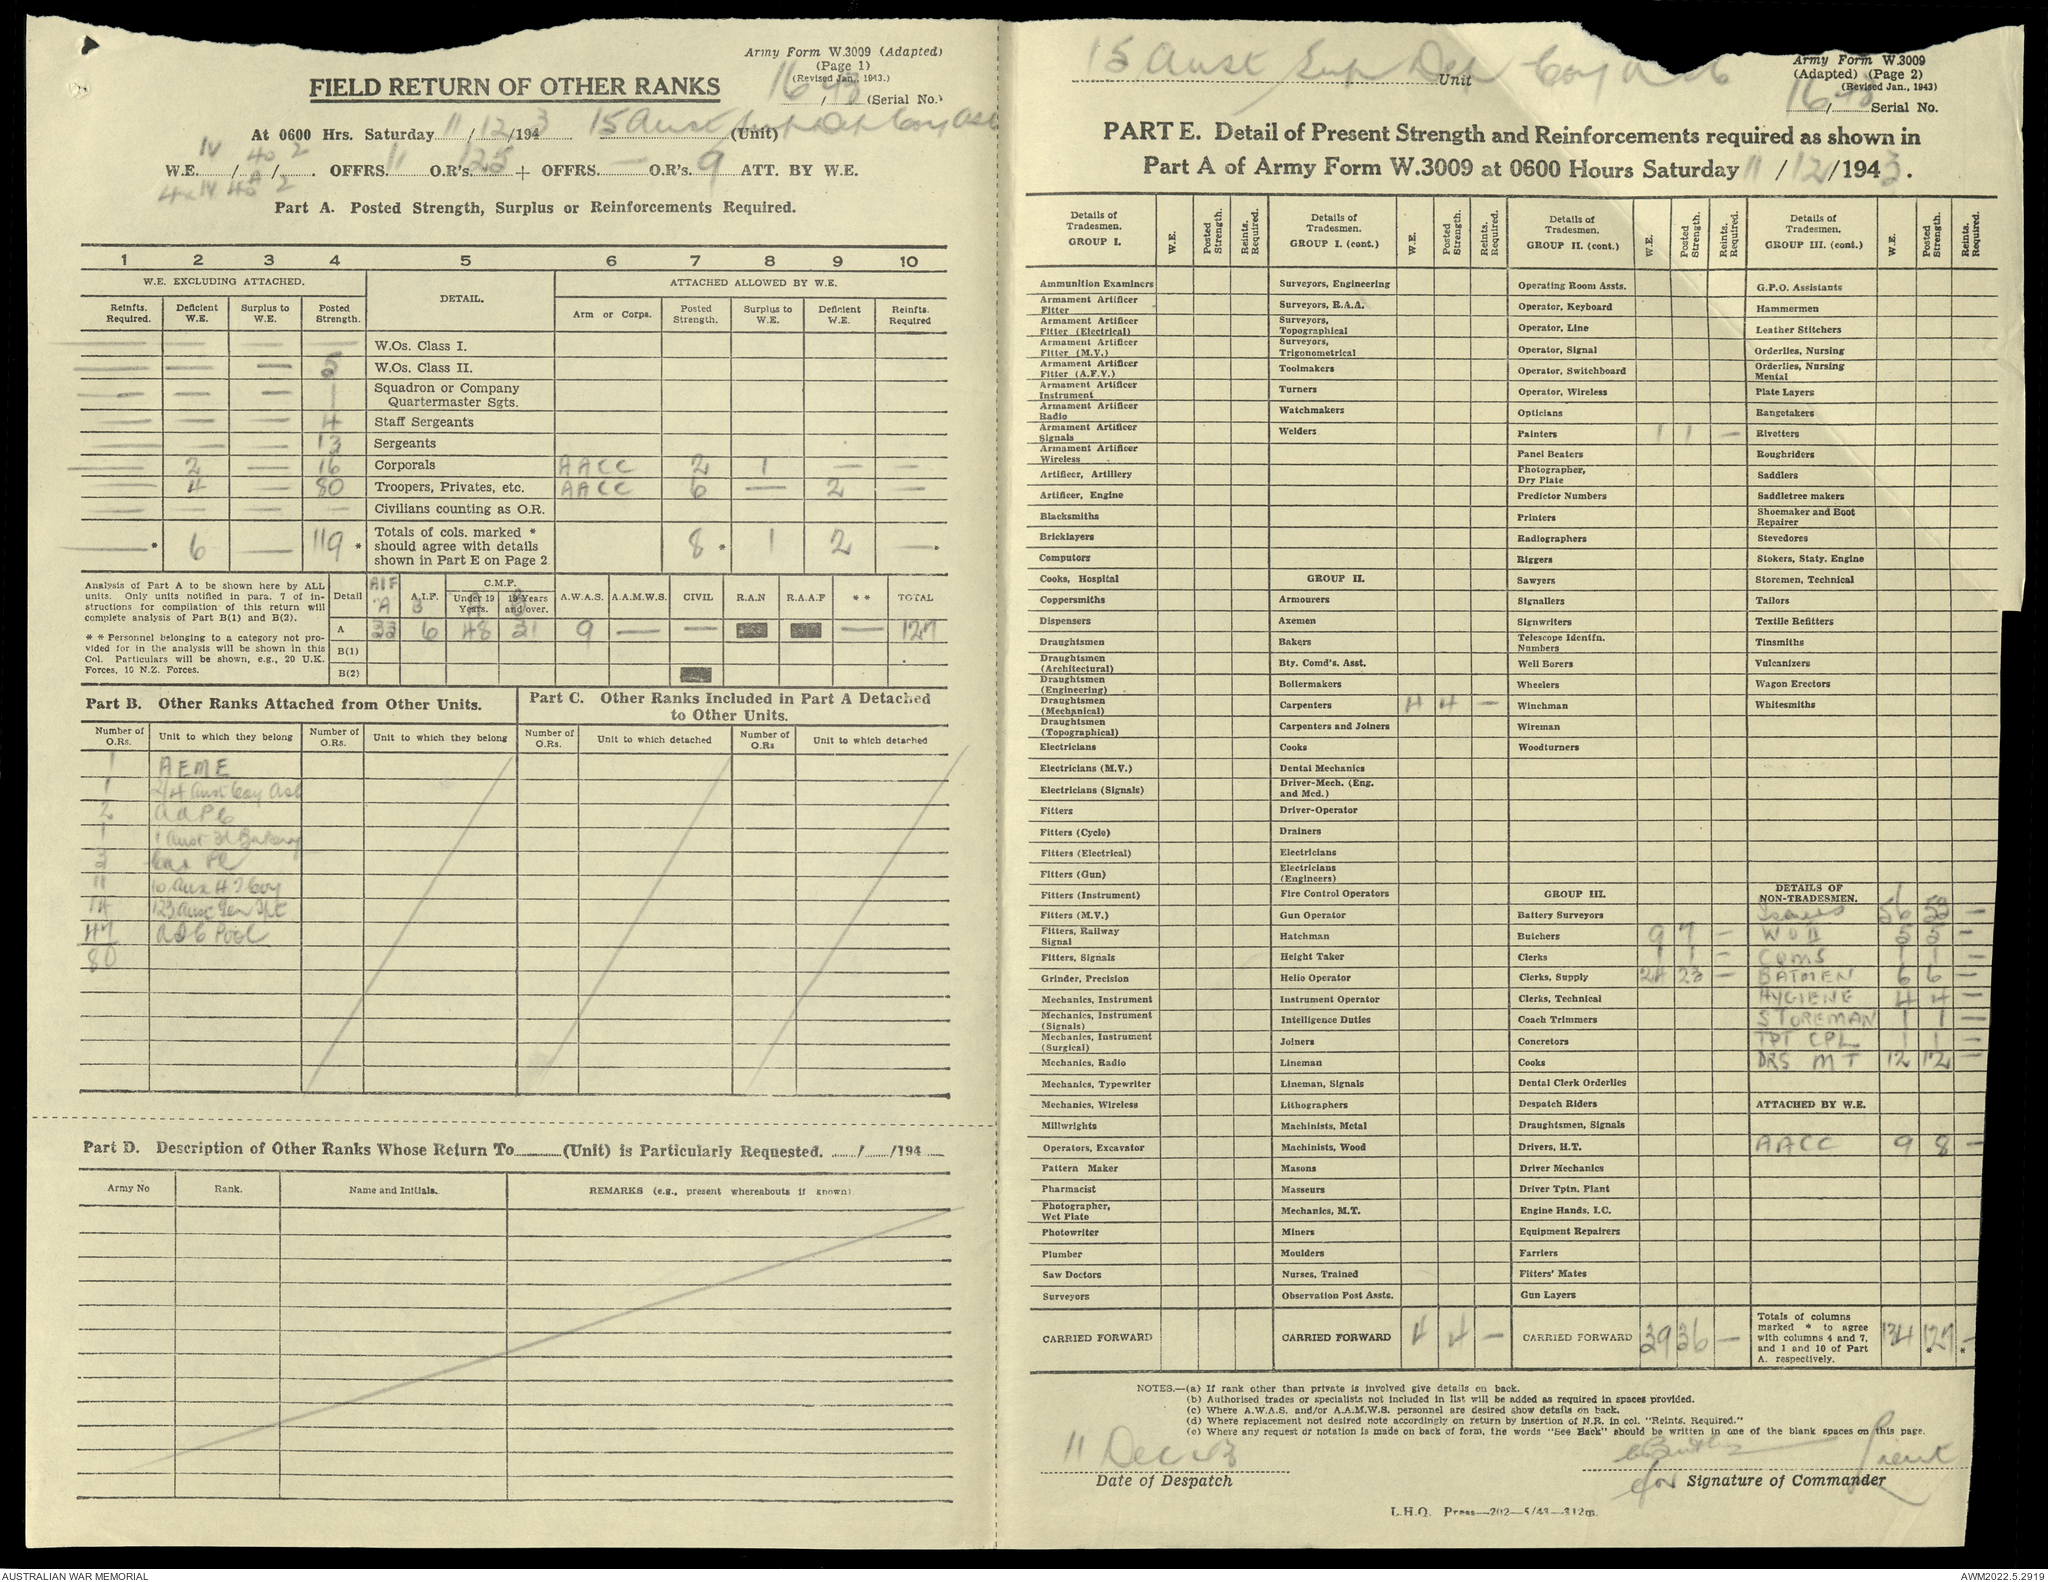 Army Form W.3009 (Adapted)
(Page 1)
(Revised Jan., 1943.)
FIELD RETURN OF OTHER RANKS
16/43 (Serial No.)
At 0600 Hrs. Saturday 11/12/1943 15 Aust Sup Dep Coy AASC (Unit)
W.E. IV/40/2. OFFRS. 11 O.R's. 125 + OFFRS. — O.R's. 9 ATT. BY W.E.
IV 40A 2
Part A. Posted Strength, Surplus or Reinforcements Required.
1 2 3 4 5 6 7 8 9 10
W.E. EXCLUDING ATTACHED. DETAIL. ATTACHED ALLOWED BY W.E.
Reinfts. Required. Deficient W.E. Surplus to W.E. Posted Strength. Arm or Corps. Posted Strength. Surplus to W.E. Deficient W.E. Reinfts. Required
— — — — W.Os. Class I.
— — — 5 W.Os. Class II.
— — — 1 Squadron or Company Quartermaster Sgts.
— — — 4 Staff Sergeants
— — — 13 Sergeants
— 2 — 16 Corporals AACC 2 1 — —
— 4 — 80 Troopers, Privates, etc. AACC 6 — 2 —
— — — — Civilians counting as O.R.
— * 6 — 119 * Totals of cols. marked * should agree with details shown in Part E on Page 2 8 * 1 2 — *
Analysis of Part A to be shown here by ALL units. Only units notified in para. 7 of instructions for compilation of this return will complete analysis of Part B(1) and B(2).
* * Personnel belonging to a category not provided for in the analysis will be shown in this Col. Particulars will be shown, e.g., 20 U.K. Forces, 10 N.Z. Forces.
Detail AIF A A.I.F. B C.M.F. Under 19 Years. 19 Years and over. A.W.A.S. A.A.M.W.S. CIVIL R.A.N R.A.A.F * * TOTAL
A 33 6 48 31 9 — — — 127
B(1)
B(2)
Part B. Other Ranks Attached from Other Units.
Part C. Other Ranks Included in Part A Detached to Other Units.
Number of O.Rs. Unit to which they belong Number of O.Rs. Unit to which they belong Number of O.Rs. Unit to which detached Number of O.Rs Unit to which detached
1 AEME
1 2/4 Aust Coy AASC
2 AAPC
1 1 Aust Fd Bakery
3
11 10 Aux H T Coy
14 123 Aust Gen Tpt
47 Pool
80
Part D. Description of Other Ranks Whose Return To (Unit) is Particularly Requested. / /194
Army No Rank. Name and Initials. REMARKS (e.g., present whereabouts if known)
15 Aust Sup Dep Coy AASC Unit
Army Form W.3009
(Adapted) (Page 2)
(Revised Jan., 1943)
16/43 Serial No.
PART E. Detail of Present Strength and Reinforcements required as shown in
Part A of Army Form W.3009 at 0600 Hours Saturday 11/12/1943.
Details of Tradesmen. GROUP I. W.E. Posted Strength. Reints. Required.
Ammunition Examiners
Armament Artificer Fitter
Armament Artificer Fitter (Electrical)
Armament Artificer Fitter (M.V.)
Armament Artificer Fitter (A.F.V.)
Armament Artificer Instrument
Armament Artificer Radio
Armament Artificer Signals
Armament Artificer Wireless
Artificer, Artillery
Artificer, Engine
Blacksmiths
Bricklayers
Computors
Cooks, Hospital
Coppersmiths
Dispensers
Draughtsmen
Draughtsmen (Architectural)
Draughtsmen (Engineering)
Draughtsmen (Mechanical)
Draughtsmen (Topographical)
Electricians
Electricians (M.V.)
Electricians (Signals)
Fitters
Fitters (Cycle)
Fitters (Electrical)
Fitters (Gun)
Fitters (Instrument)
Fitters (M.V.)
Fitters, Railway Signal
Fitters, Signals
Grinder, Precision
Mechanics, Instrument
Mechanics, Instrument (Signals)
Mechanics, Instrument (Surgical)
Mechanics, Radio
Mechanics, Typewriter
Mechanics, Wireless
Millwrights
Operators, Excavator
Pattern Maker
Pharmacist
Photographer, Wet Plate
Photowriter
Plumber
Saw Doctors
Surveyors
CARRIED FORWARD
Details of Tradesmen. GROUP I. (cont.) W.E. Posted Strength. Reints. Required.
Surveyors, Engineering
Surveyors, R.A.A.
Surveyors, Topographical
Surveyors, Trigonometrical
Toolmakers
Turners
Watchmakers
Welders
GROUP II.
Armourers
Axemen
Bakers
Bty. Comd's. Asst.
Boilermakers
Carpenters 4 4 —
Carpenters and Joiners
Cooks
Dental Mechanics
Driver-Mech. (Eng. and Med.)
Driver-Operator
Drainers
Electricians
Electricians (Engineers)
Fire Control Operators
Gun Operator
Hatchman
Height Taker
Helio Operator
Instrument Operator
Intelligence Duties
Joiners
Lineman
Lineman, Signals
Lithographers
Machinists, Metal
Machinists, Wood
Masons
Masseurs
Mechanics, M.T.
Miners
Moulders
Nurses, Trained
Observation Post Assts.
CARRIED FORWARD 4 4 —
Details of Tradesmen. GROUP II. (cont.) W.E. Posted Strength. Reints. Required.
Operating Room Assts.
Operator, Keyboard
Operator, Line
Operator, Signal
Operator, Switchboard
Operator, Wireless
Opticians
Painters 1 1 —
Panel Beaters
Photographer, Dry Plate
Predictor Numbers
Printers
Radiographers
Riggers
Sawyers
Signallers
Signwriters
Telescope Identfn. Numbers
Well Borers
Wheelers
Winchman
Wireman
Woodturners
GROUP III.
Battery Surveyors
Butchers 9 7 —
Clerks 1 1 —
Clerks, Supply 24 23 —
Clerks, Technical
Coach Trimmers
Concretors
Cooks
Dental Clerk Orderlies
Despatch Riders
Draughtsmen, Signals
Drivers, H.T.
Driver Mechanics
Driver Tptn. Plant
Engine Hands, I.C.
Equipment Repairers
Farriers
Fitters' Mates
Gun Layers
CARRIED FORWARD 39 36 —
Details of Tradesmen. GROUP III. (cont.) W.E. Posted Strength. Reints. Required.
G.P.O. Assistants
Hammermen
Leather Stitchers
Orderlies, Nursing
Orderlies, Nursing Mental
Plate Layers
Rangetakers
Rivetters
Roughriders
Saddlers
Saddletree makers
Shoemaker and Boot Repairer
Stevedores
Stokers, Staty. Engine
Storemen, Technical
Tailors
Textile Refitters
Tinsmiths
Vulcanizers
Wagon Erectors
Whitesmiths
DETAILS OF NON-TRADESMEN.
Issuers 56 52 —
W O II 5 5 —
CQMS 1 1 —
BATMEN 6 6 —
HYGIENE 4 4 —
STOREMAN 1 1 —
TPT CPL 1 1 —
DRS M T 12 12 —
ATTACHED BY W.E.
AACC 9 8 —
Totals of columns marked * to agree with columns 4 and 7, and 1 and 10 of Part A. respectively. 134 127 * — *
NOTES.—(a) If rank other than private is involved give details on back.
(b) Authorised trades or specialists not included in list will be added as required in spaces provided.
(c) Where A.W.A.S. and/or A.A.M.W.S. personnel are desired show details on back.
(d) Where replacement not desired note accordingly on return by insertion of N.R. in col. "Reints. Required."
(e) Where any request or notation is made on back of form, the words "See Back" should be written in one of the blank spaces on this page.
11 Dec 43
Lieut
Date of Despatch
for Signature of Commander
L.H.Q. Press—202—5/43—312m.
AUSTRALIAN WAR MEMORIAL
AWM2022.5.2919